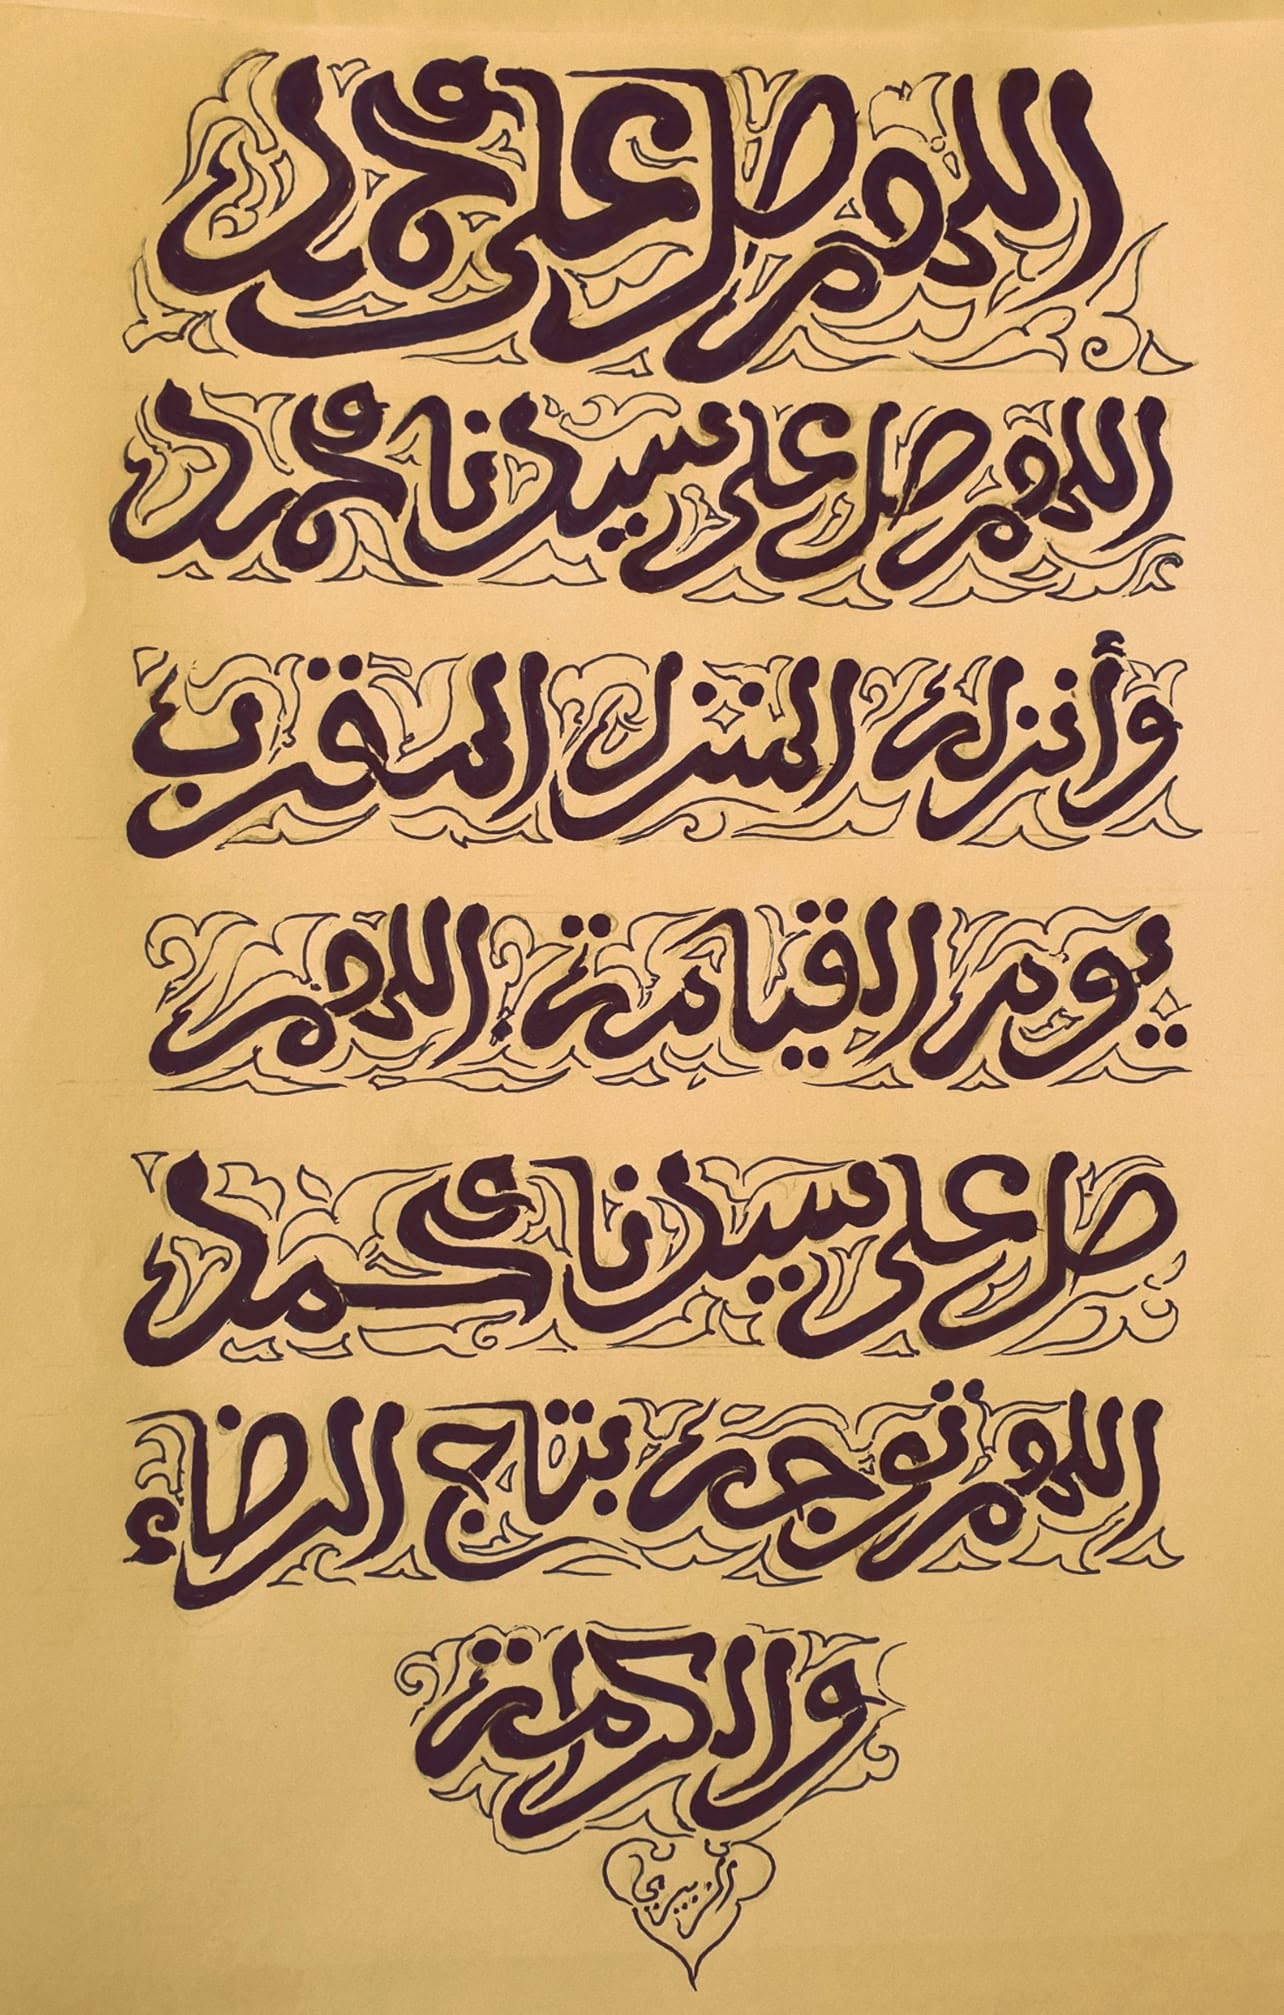 اللهم صل على محمد
اللهم صل على سيدنا محمد
وأنزله المنزل المقرب
يوم القيامة اللهم
صل على سيدنا محمد
اللهم توجه بتاج الرضاء
والكرامة
الزبيري